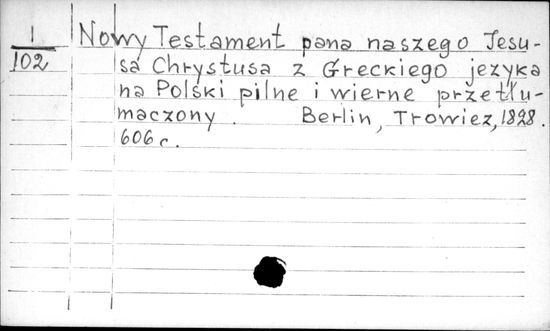 1
102
Nowy Testament pana naszego Jesu-
sa Chrystusa z Greckiego jezyka
na Polski pilne i wierne przetłu-
maczony. Berlin, Trowiez, 1828.
606 c.